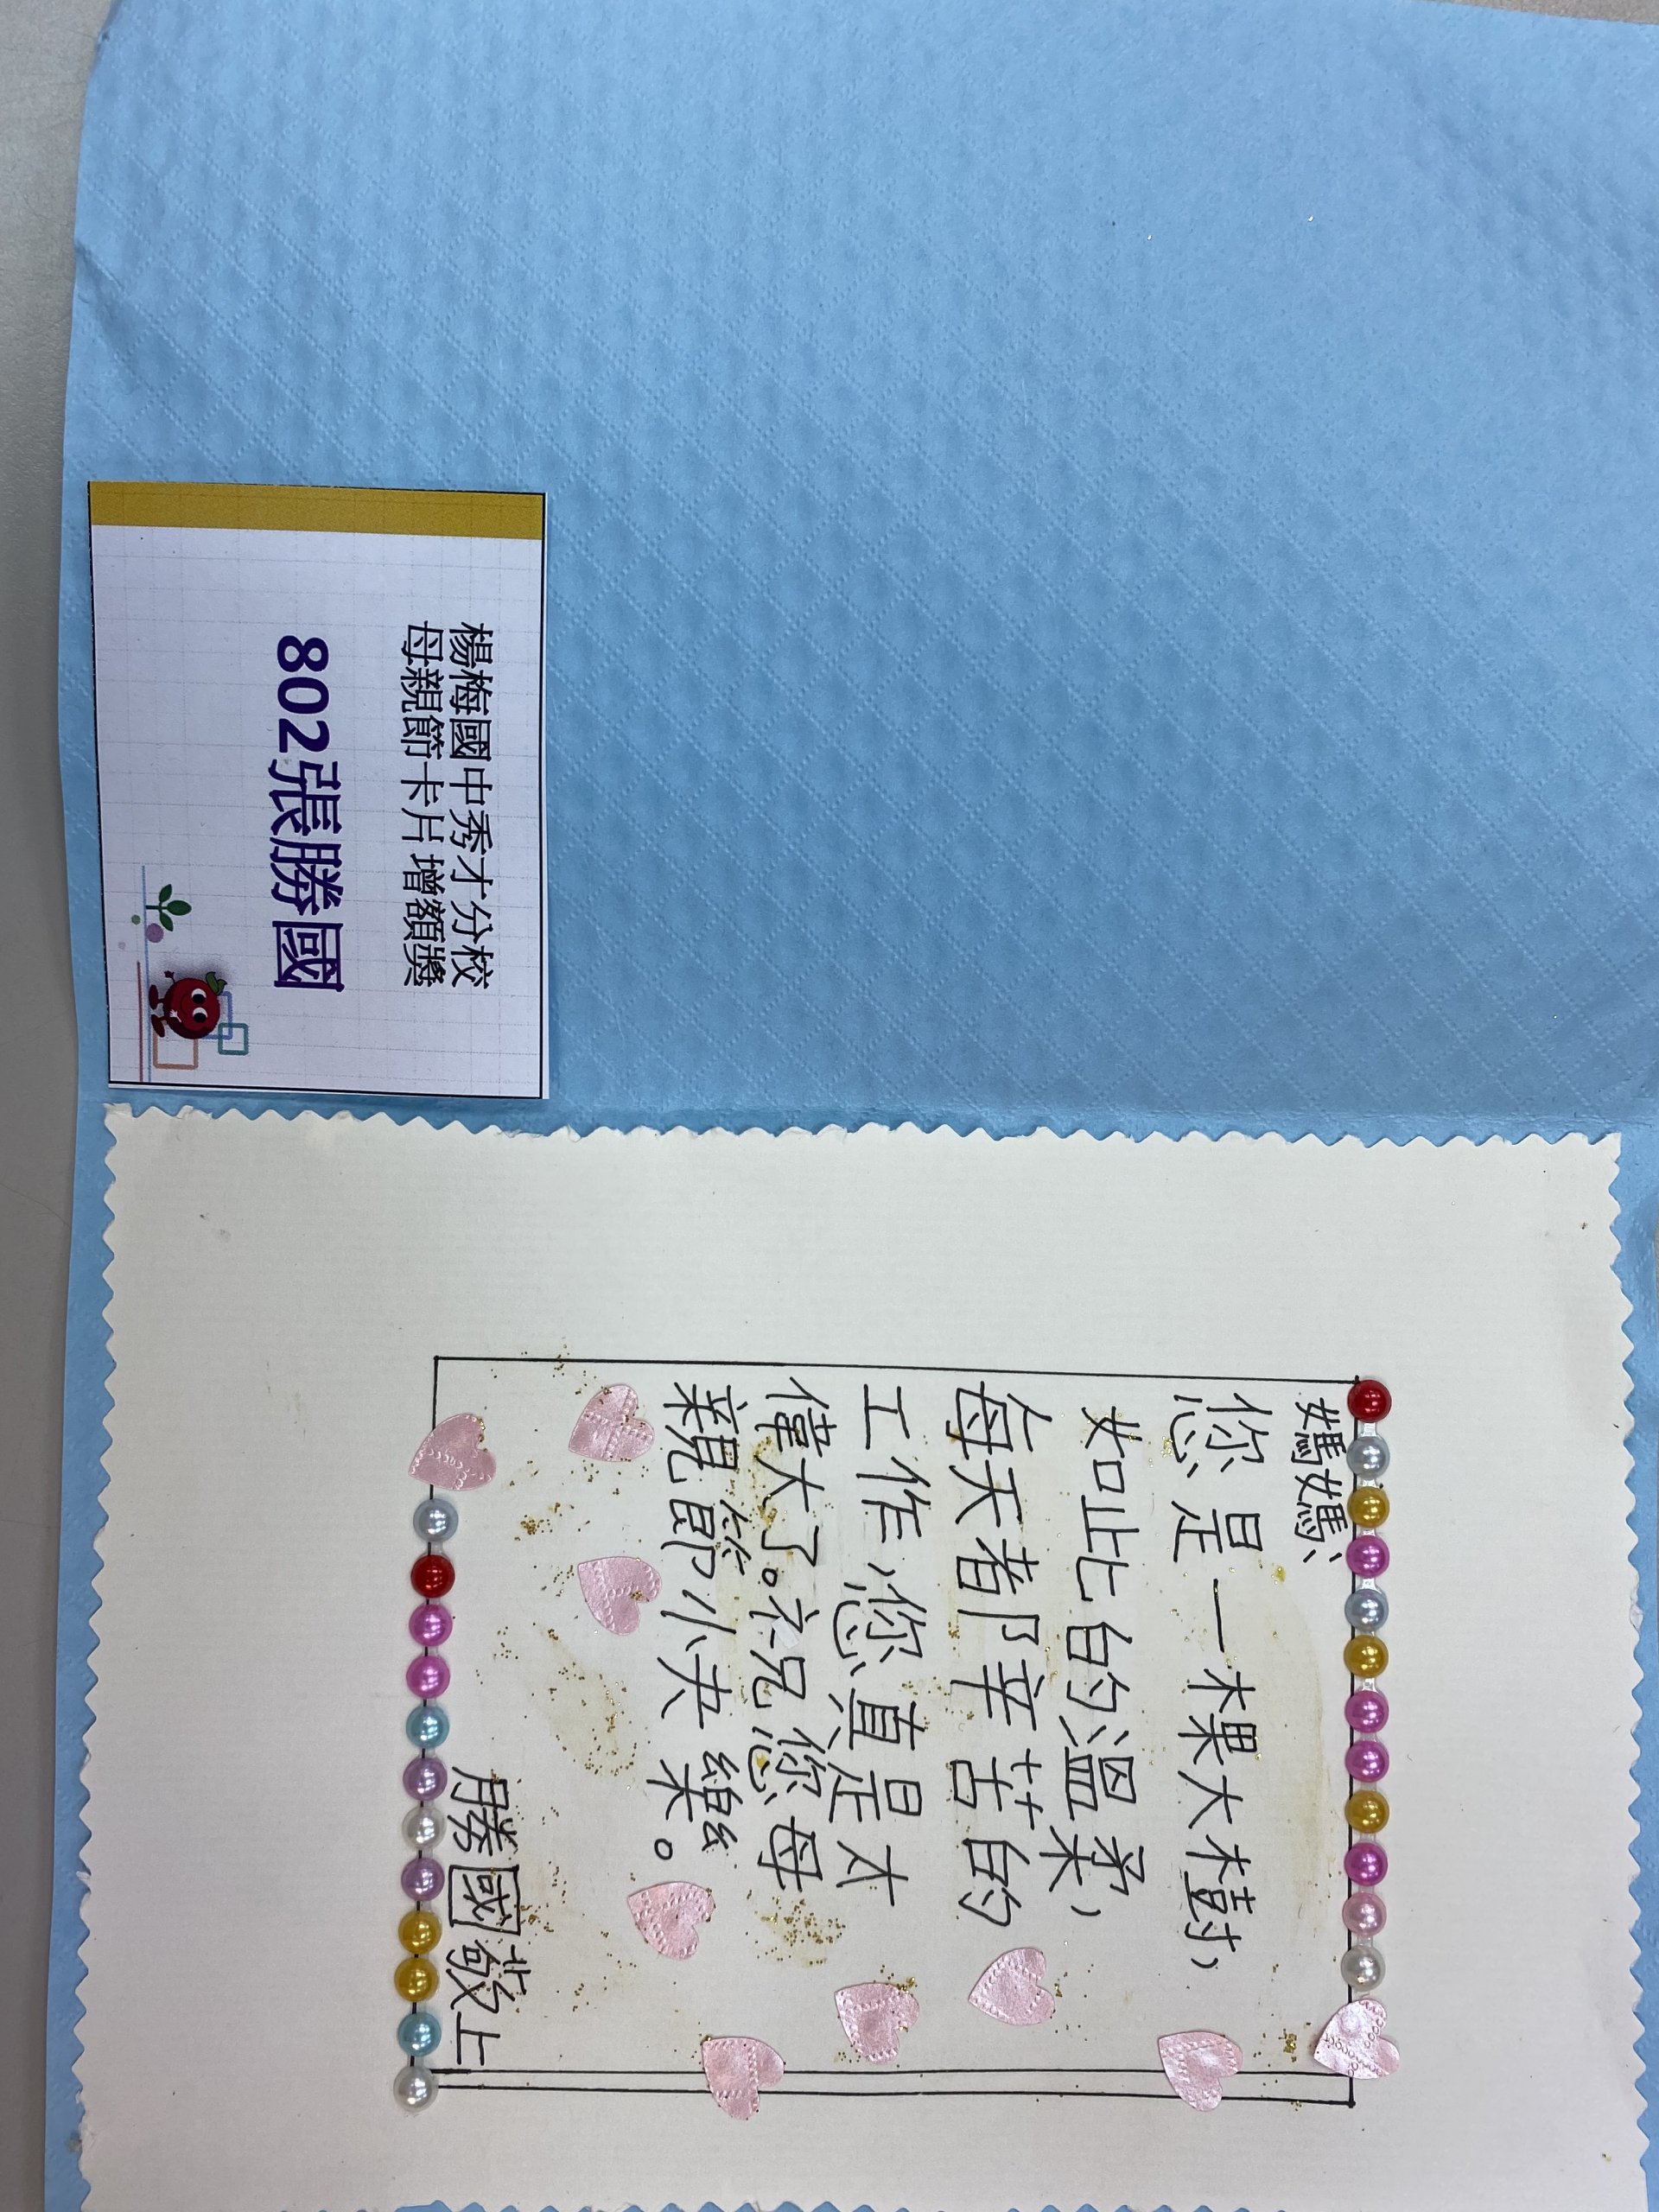 楊梅國中秀才分校
母親節卡片增額獎
802張勝國
媽媽、
您是一棵大樹，
如此的溫柔，
每天都辛苦的
工作您真是太
偉大了。祝您母
親節快樂。
勝國敬上